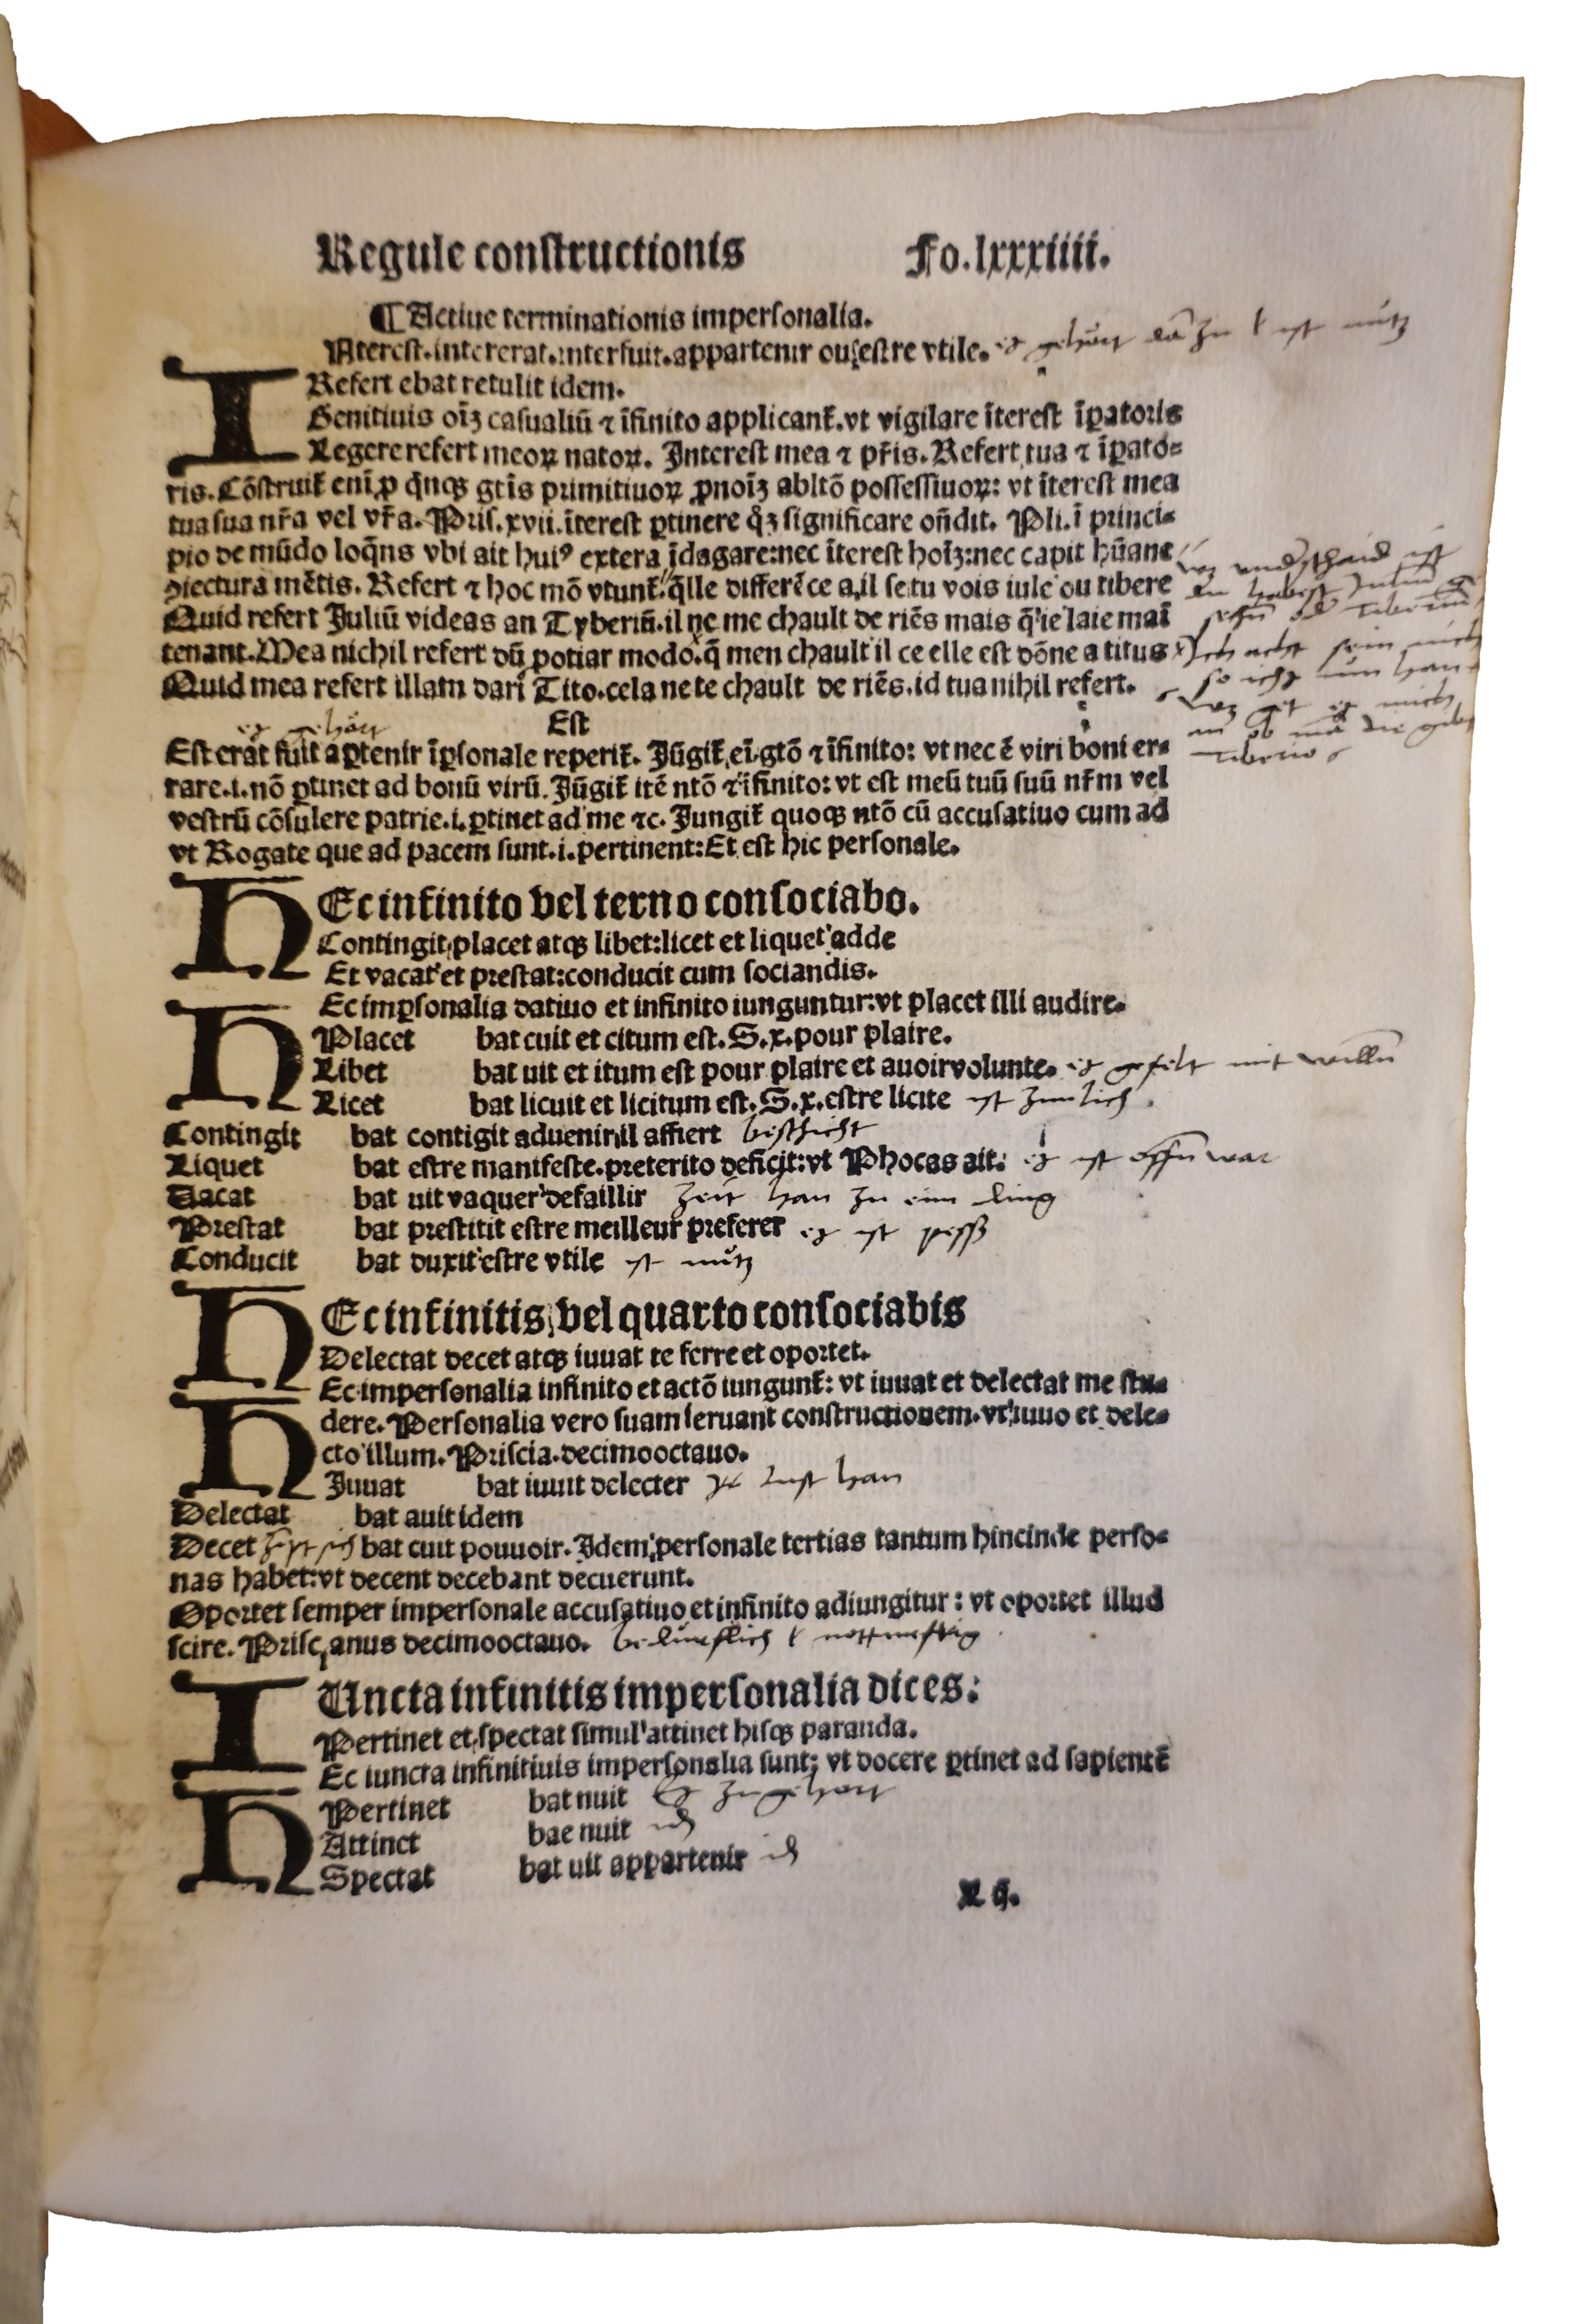 Regule constructionis Fo.lxxxiiii.
¶Actiue terminationis impersonalia.
INterest.intererat.interfuit.appartenir ou estre vtile. es gehört da zu l ist nütz
Refert ebat retulit idem.
Genitiuis oīʒ casualiū ⁊ īfinito applicant᷑.vt vigilare īterest īꝑatoris
Legere refert meoꝝ natoꝝ. Interest mea ⁊ pr̄is. Refert tua ⁊ īꝑato⸗
ris. Cōstruit᷑ eni ꝓ q̄nqꝫ gtīs primitiuoꝝ ꝓnoīʒ abltō possessiuoꝝ: vt īterest mea
tua sua nr̄a vel vr̄a. Pris. xvii. īterest ꝑtinere qʒ significare on̄dit. Pli. ī princi⸗
pio de mūdo loq̄ns vbi ait huiꝰ extera īdagare:nec īterest hoīʒ:nec capit hūane
ꝯiectura mētis. Refert ⁊ hoc mō vtunt᷑.q̄lle differēce a il se tu vois iule ou tibere
Quid refert Juliū videas an Tyberiū.il ne me chault de riēs mais q̄ ie laie mai
tenant. Mea nichil refert dū potiar modo.q̄ men chault il ce elle est dōne a titus
Quid mea refert illam dari Tito.cela ne te chault de riēs.id tua nihil refert.
es gehört
Est
Est erat fuit aꝑtenir īꝑsonale reperit᷑. Jūgit᷑ ei gtō ⁊ īfinito: vt nec ē viri boni er⸗
rare.i.nō ꝑtinet ad bonū virū. Jūgit᷑ itē ntō ⁊ īfinito: vt est meū tuū suū nr̄m vel
vestrū cōsulere patrie.i.ꝑtinet ad me ⁊c. Jungit᷑ quoqꝫ ntō cū accusatiuo cum ad
vt Rogate que ad pacem sunt.i.pertinent:Et est hic personale.
HEc infinito vel terno consociabo.
Contingit placet atqꝫ libet:licet et liquet adde
Et vacat et prestat:conducit cum sociandis.
HEc imꝑsonalia datiuo et infinito iunguntur:vt placet illi audire.
Placet bat cuit et citum est. S.x.pour plaire.
Libet bat uit et itum est pour plaire et auoirvolunte. es gefelt mit willn̄
Licet bat licuit et licitum est. S.x.estre licite ist zimlich.
Contingit bat contigit aduenir il affiert beschicht
Liquet bat estre manifeste.preterito deficit:vt Phocas ait. es ist offn̄war
Uacat bat uit vaquer defaillir zeit han zu eim ding
Prestat bat prestitit estre meilleur preferer es ist pess
Conducit bat duxit estre vtile ist nütz
HEc infinitis vel quarto consociabis
Delectat decet atqꝫ iuuat te ferre et oportet.
HEc impersonalia infinito et actō iungunt᷑: vt iuuat et delectat me stu⸗
dere. Personalia vero suam seruant constructionem.vt iuuo et dele⸗
cto illum. Priscia.decimooctauo.
Juuat bat iuuit delecter lust han
Delectat bat auit idem
Decet bat cuit pouuoir. Idem personale tertias tantum hincinde perso⸗
nas habet:vt decent decebant decuerunt.
Oportet semper impersonale accusatiuo et infinito adiungitur: vt oportet illud
scire. Priscianus decimooctauo. bedürflich l nottürftig
IUncta infinitis impersonalia dices:
Pertinet et spectat simul attinet hisqꝫ paranda.
HEc iuncta infinitiuis impersonalia sunt: vt docere ꝑtinet ad sapientē
Pertinet bat nuit Es zugehört
Attinet bae nuit id
Spectat bat uit appartenir id
L ij.
wz underschaid ist
du habest Juliū ge
sehn̄ od Tiberiū
Ich acht sein nich
so ichs nun han
wz get es mich
an ob mā die geb
Tiberio